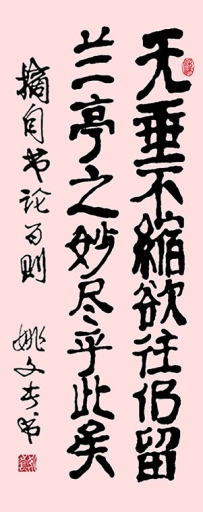 无垂不縮欲往仍留
兰亭之妙尽乎此矣
摘自书论百则
姚文书